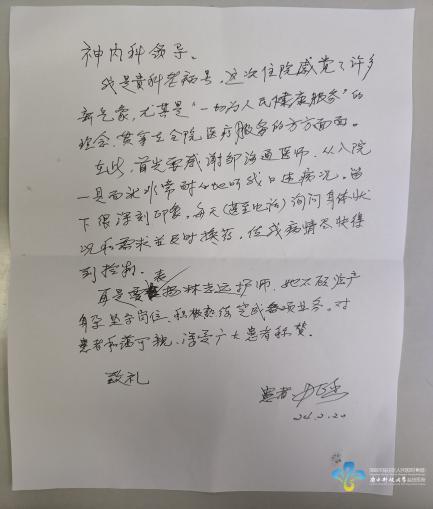 神内科领导。
我是贵科老病号，这次住院感觉了许多
新气象，尤其是“一切为人民健康服务”的
理念，贯穿在全院医疗服务的方方面面。
在此，首先要感谢邹海通医师，从入院
一见面就非常耐心地听我口述病况，留
下很深刻印象，每天（甚至电话）询问身体状
况和需求并及时换药，使我病情尽快得
到控制。
再是要表扬林吉运护师，她不顾临产
身孕坚守岗位，积极热情完成各项业务。对
患者和蔼可亲，深受广大患者称赞。
致礼
患者
24.2.20
南方科技大学